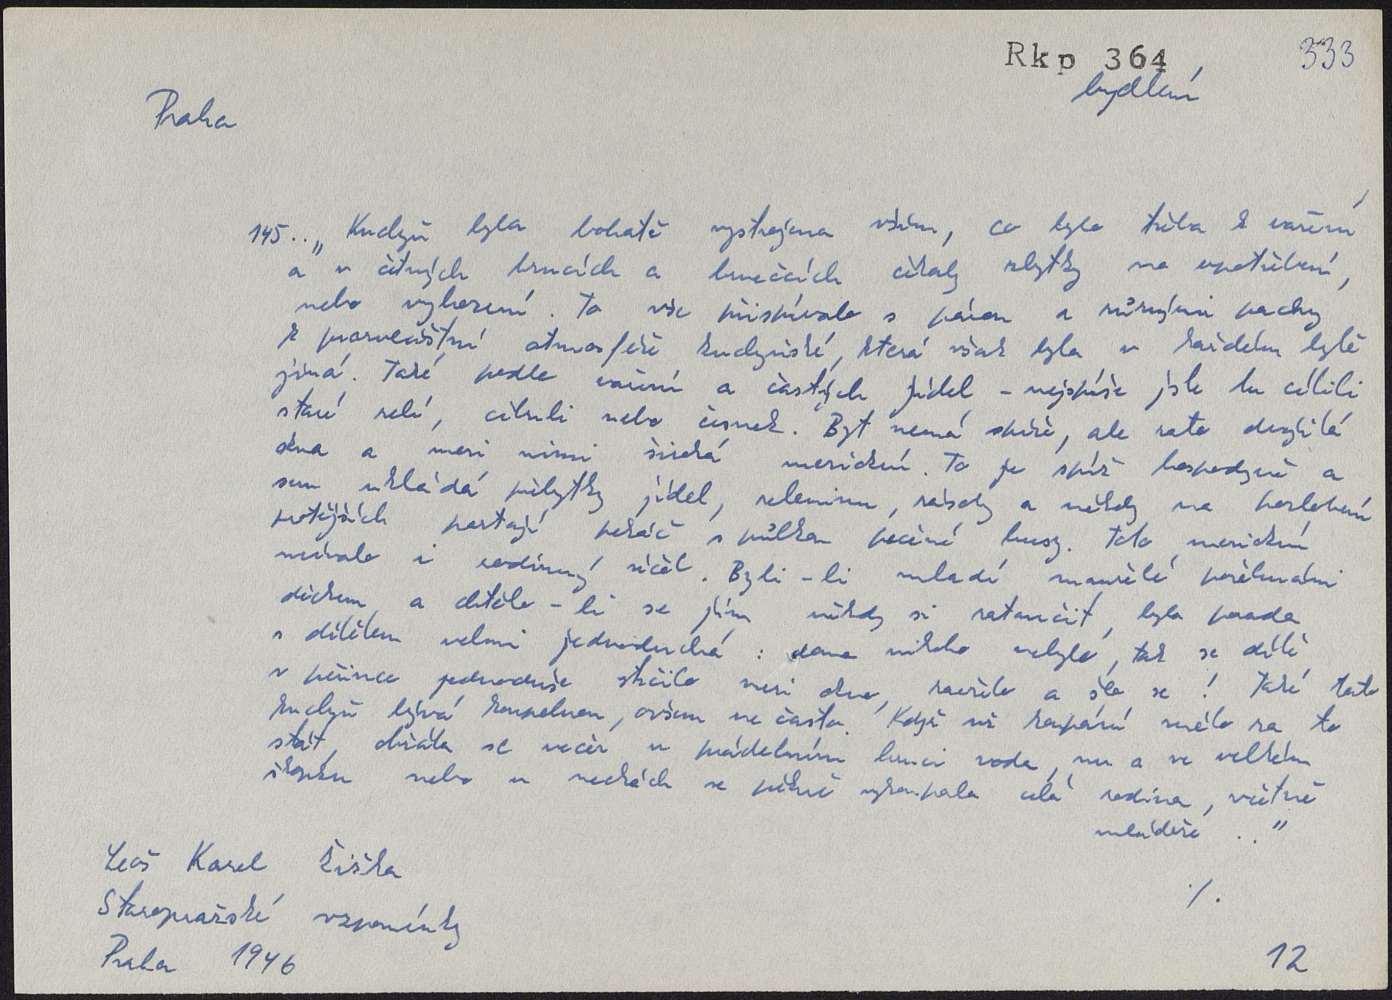 Rkp 364
333
bydlení
Praha
145.. „Kuchyň byla bohatě vystrojena vším, co bylo třeba k vaření
a v četných hrncích a hrnečcích čekaly zbytky na upotřebení,
nebo vyhození. To vše přispívalo s párou a různými pachy
k prazvláštní atmosféře kuchyňské, která však byla v každém bytě
jiná. Také podle vaření a častých jídel – nejspíše jste tu cítili
staré zelí, cibuli nebo česnek. Byt nemá spíže, ale zato dvojitá
okna a mezi nimi široká meziokní. To je spíž hospodyně a
sem ukládá přebytky jídel, zeleninu, zásoby a někdy na pozlobení
protějších partají pekáč s půlkou pečené husy. Toto meziokní
mívalo i rodinný účel. Byli-li mladí manželé požehnáni
děckem a chtělo-li se jim někdy si zatančit, byla porada
s dítětem velmi jednoduchá: doma nikdo nebyl, tak se dítě
v peřince jednoduše strčilo mezi okno, zavřelo a šlo se! Také tato
kuchyň bývá koupelnou, ovšem ne často. Když už koupání mělo za to
stát, ohřála se večer v prádelním hrnci voda, nu a ve velkém
škopku nebo v neckách se pěkně vykoupala celá rodina, včetně
mládeže . ."
Leoš Karel Žižka
Staropražské vzpomínky
Praha 1946
·/.
12